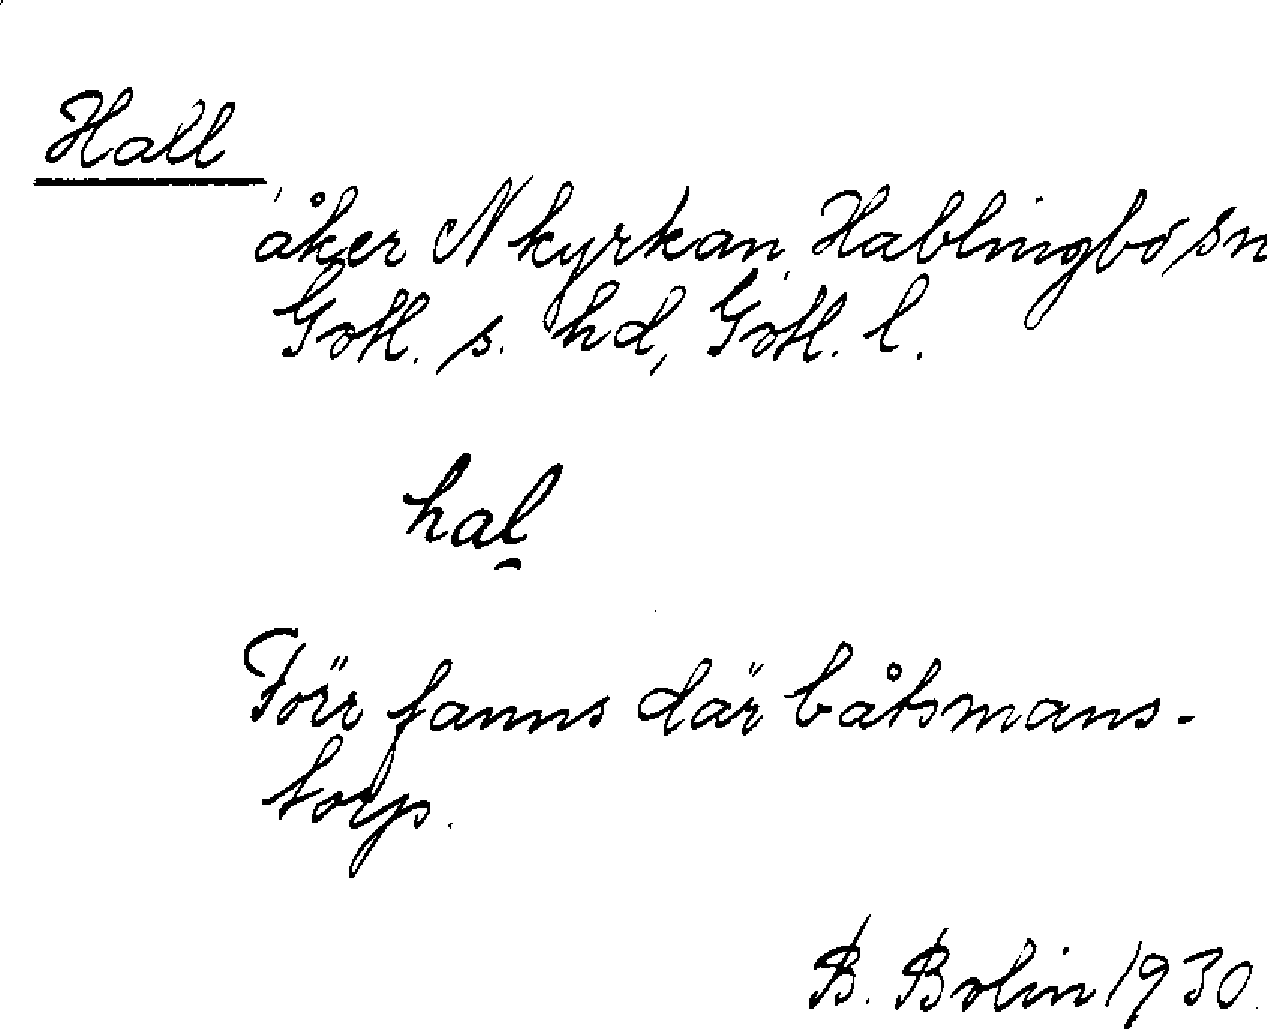 Hall
åker N kyrkan, Hablingbo sn
Gotl. s. hd, Gotl. l.
hal̮
Förr fanns där båtsmans-
torp.
B. Bolin 1930.